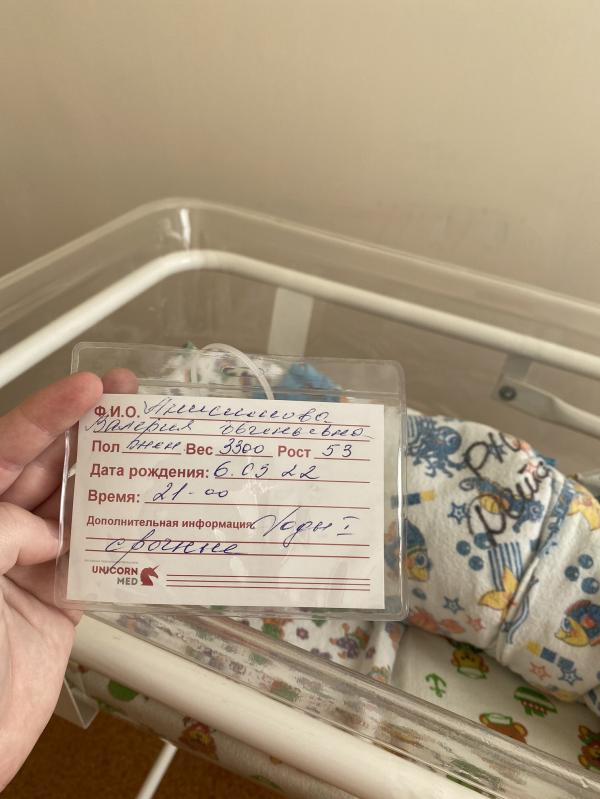 Ф.И.О. Анисимова
Валерия Евгеньевна
Пол жен Вес 3300 Рост 53
Дата рождения: 6.05 22
Время: 21-00
Дополнительная информация: Роды I
срочные
UNICORN
MED